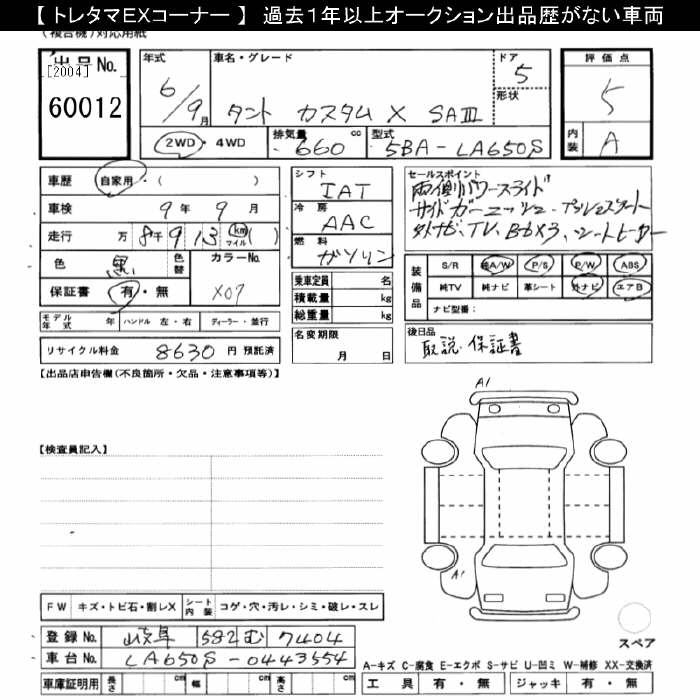 【 トレタマEXコーナー 】 過去1年以上オークション出品歴がない車両
(複合機)対応用紙
出品No.
[2004]
60012
年式
6/9月
車名・グレード
タント カスタム X SAⅢ
ドア
5
形状
評価点
5
内装
A
2WD・4WD
排気量
660 cc
型式
5BA-LA650S
車歴 自家用・( )
車検 9年 9月
走行 万 8千913 (km マイル)( )
色 黒 色替
カラーNo. X07
保証書 有・無
モデル年式 年 ハンドル 左・右 ディーラー・並行
リサイクル料金 8630 円 預託済
シフト
IAT
冷房
AAC
燃料
ガソリン
乗車定員 名
積載量 kg
総重量 kg
名変期限
月 日
セールスポイント
両側パワースライド
外ナビ、TV、シートヒーター
装備品
S/R 純A/W P/S P/W ABS
純TV 純ナビ 革シート 外ナビ エアB
ナビ型番:
後日品
取説・保証書
【出品店申告欄(不良箇所・欠品・注意事項等)】
A1
【検査員記入】
A1
FW キズ・トビ石・割レX シート内装 コゲ・穴・汚レ・シミ・破レ・スレ
スペア
登録No. 岐阜 582 む 7404
車台No. LA650S-0443554
A-キズ C-腐食 E-エクボ S-サビ U-凹ミ W-補修 XX-交換済
車庫証明用 長さ cm 幅 cm 高さ cm
工具 有・無 ジャッキ 有・無